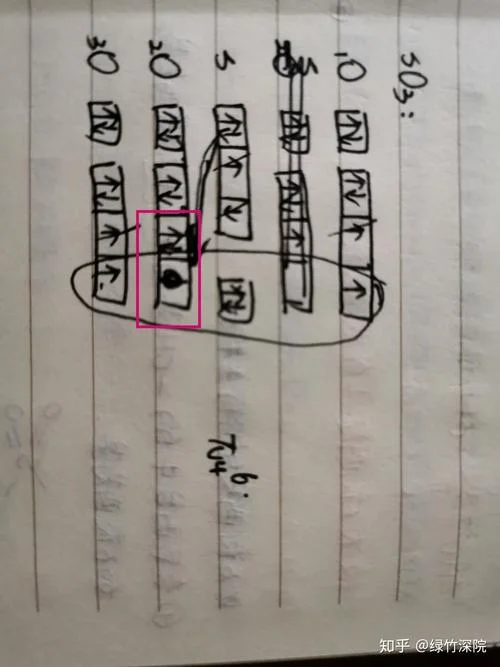 SO₃:
₁O
S
S
₂O
₃O
π₄⁶
知乎 @绿竹深院